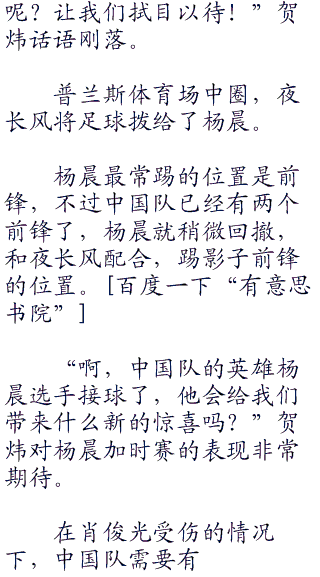 呢？让我们拭目以待！”贺
炜话语刚落。
普兰斯体育场中圈，夜
长风将足球拨给了杨晨。
杨晨最常踢的位置是前
锋，不过中国队已经有两个
前锋了，杨晨就稍微回撤，
和夜长风配合，踢影子前锋
的位置。[百度一下“有意思
书院”]
“啊，中国队的英雄杨
晨选手接球了，他会给我们
带来什么新的惊喜吗？”贺
炜对杨晨加时赛的表现非常
期待。
在肖俊光受伤的情况
下，中国队需要有